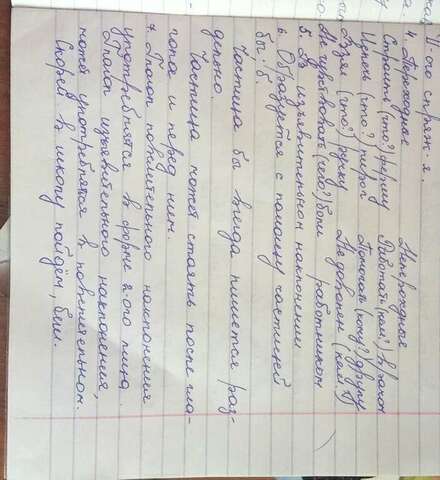 1-ого спряж-я.
4. Переходные Непереходные
Строить (что?) ферму Работать (кем?) врачом
Испечь (что?) пирог Помогать (кому?) другу
Взял (что?) ручку Не доволен (кем?)
Не чувствовать боли работником
5. В изъявительном наклонении
6. Образуется с помощью частицей
бы, б.
Частица бы всегда пишется раз-
дельно.
Частица может стоять после гла-
гола и перед ним.
7. Глагол повелительного наклонения
употребляется в форме 2-ого лица.
Глагол изъявительного наклонения,
может употребляться в повелительном.
Скорей в школу пойдём,